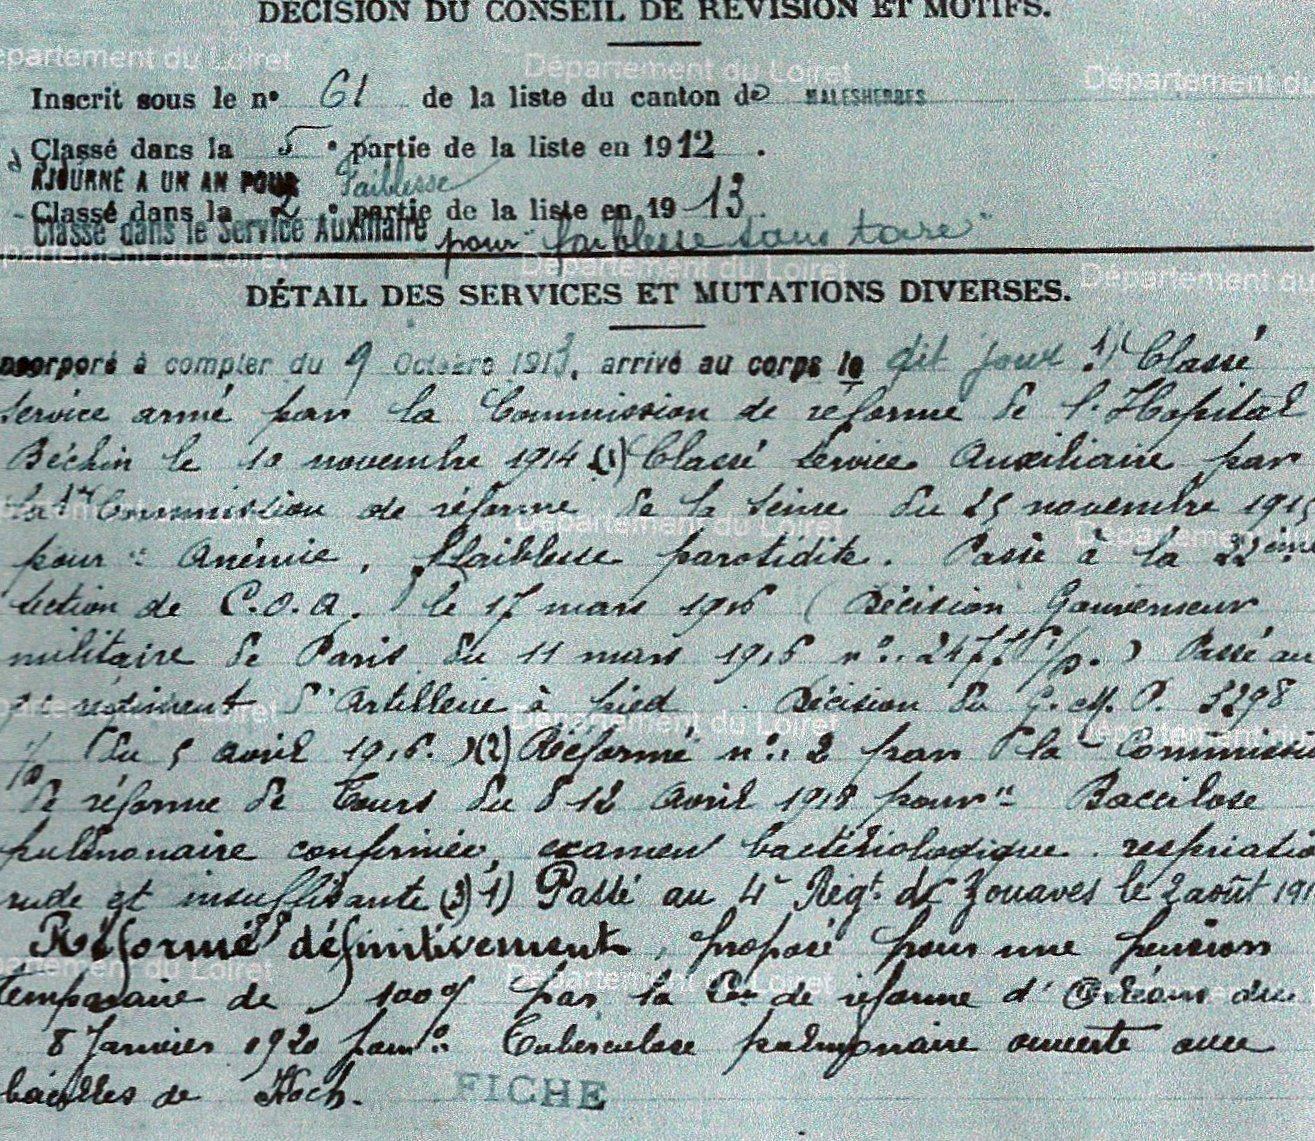 DÉCISION DU CONSEIL DE RÉVISION ET MOTIFS.
Inscrit sous le n° 61 de la liste du canton de MALESHERBES
Classé dans la 5e partie de la liste en 1912.
AJOURNÉ A UN AN POUR Faiblesse
Classé dans la 2e partie de la liste en 1913.
Classé dans le Service Auxiliaire pour "faiblesse sans tare"
DÉTAIL DES SERVICES ET MUTATIONS DIVERSES.
Incorporé à compter du 9 Octobre 1913, arrivé au corps le dit jour. 1) Classé
service armé par la Commission de réforme de l'Hopital
Béchin le 10 novembre 1914 (1) Classé Service Auxiliaire par
la 1re Commission de réforme de la Seine du 25 novembre 1915
pour : Anémie, faiblesse parotidite. Passé à la 22ème
section de C.O.A. le 17 mars 1916 (Décision Gouverneur
militaire de Paris du 11 mars 1916 n°: 2477 ) Passé au
régiment d'Artillerie à pied. Décision du G.M.P. 5298
du 5 avril 1916.)(2) Réformé n°: 2 par la Commissi
de réforme de Tours du 12 Avril 1918 pour " Baccilose
pulmonaire confirmée, examen bactériologique. respiratio
rude et insuffisante (3) 1) Passé au 4e Régt de Zouaves le 2 août 191
Réformé définitivement, proposé pour une pension
temporaire de 100% par la Con de réforme d'Orléans du
8 Janvier 1920 pour : Tuberculose pulmonaire ouverte avec
bacilles de Koch.
FICHE
Département du Loiret